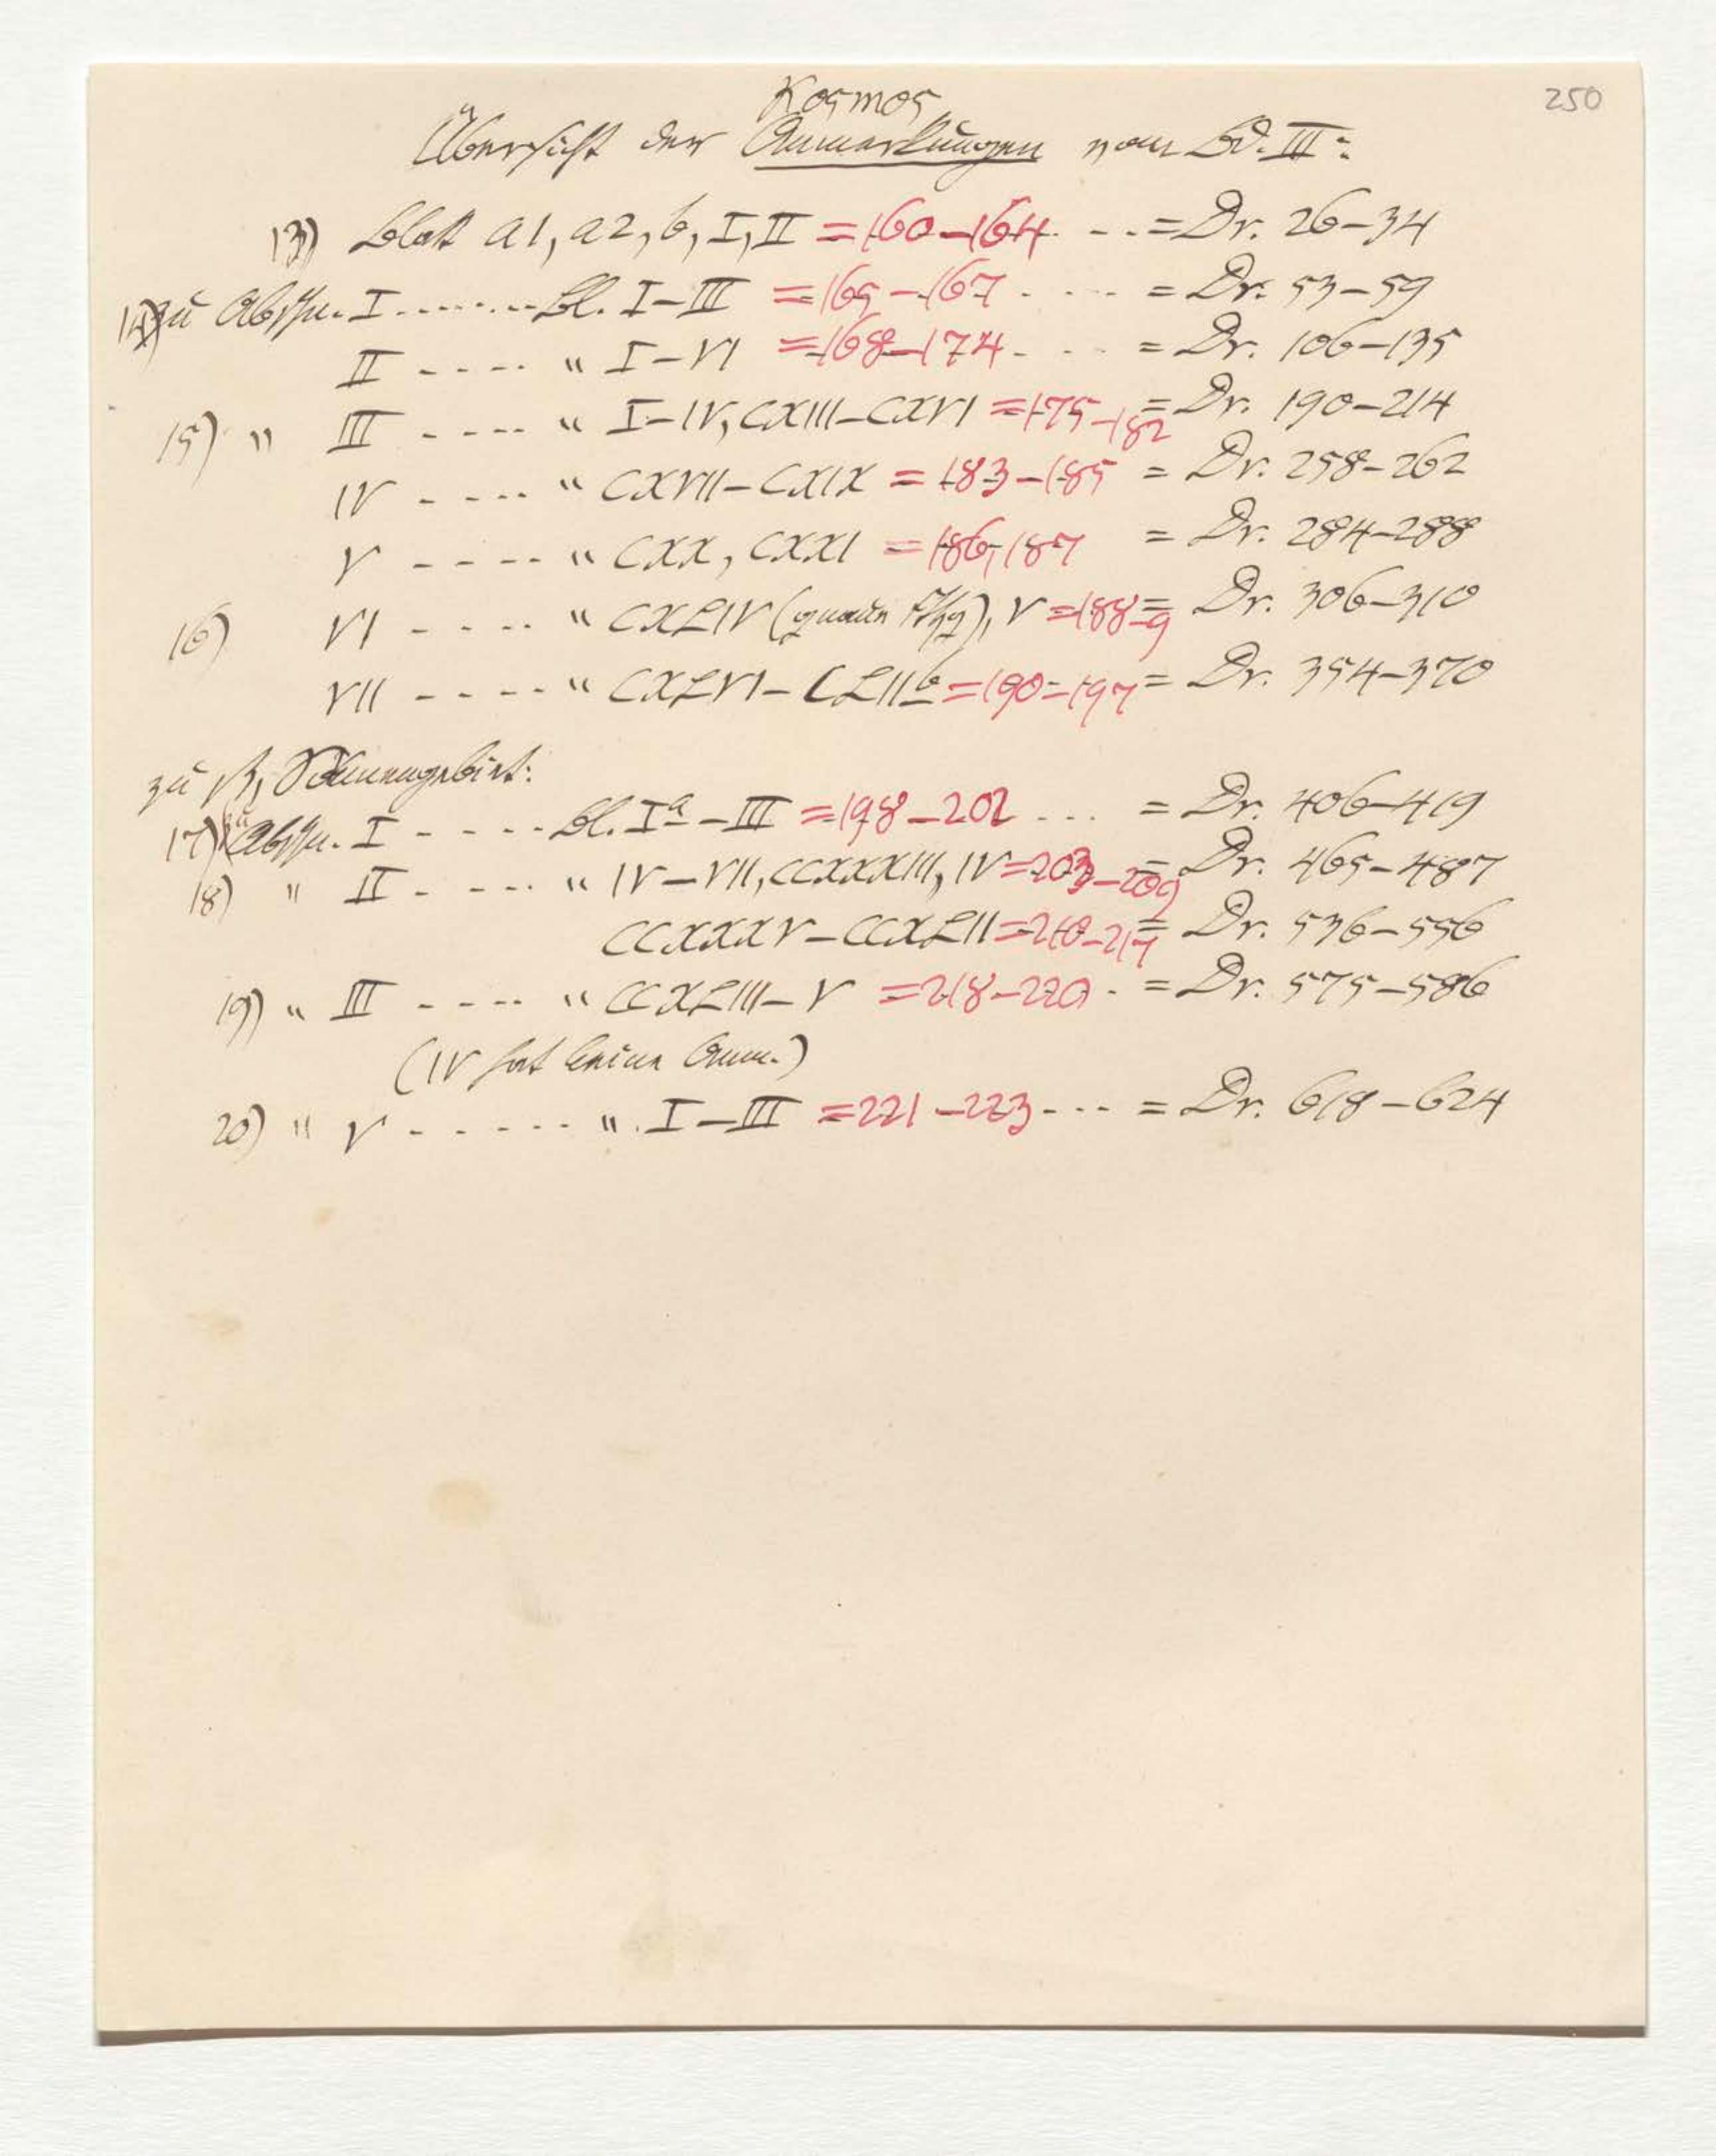 250
Kosmos
Übersicht der Anmerkungen von Bd. III:
13) Blatt a1, a2, b, I, II = 160–164 . - . . = Dr. 26–34
14) zu Abschn. I . . . . . . . . Bl. I–III = 165–167 . - - - = Dr. 53–59
II - - - - - " I–VI = 168–174 - . - - = Dr. 106–135
15) " III - - - - - " I–IV, CXIII–CXVI = 175–182 = Dr. 190–214
IV - - - - - " CXVII–CXIX = 183–185 = Dr. 258–262
V - - - - - " CXX, CXXI = 186, 187 = Dr. 284–288
16) VI - - - - - " CXLIV ( ), V = 188–9 = Dr. 306–310
VII - - - - - " CXLVI–CLIIb = 190–197 = Dr. 354–370
zu β, Sonnengebiet:
17) zu Abschn. I - - - - - Bl. Ia–III = 198–202 . . . . = Dr. 406–419
18) " II - - - - - " IV–VII, CCXXXIII, IV = 203–209 = Dr. 465–487
CCXXXV–CCXLII = 210–217 = Dr. 536–556
19) " III - - - - - " CCXLIII–V = 218–220 . = Dr. 575–586
(IV hat keine Anm.)
20) " V - - - - - - " . I–III = 221–223 - - - - = Dr. 618–624